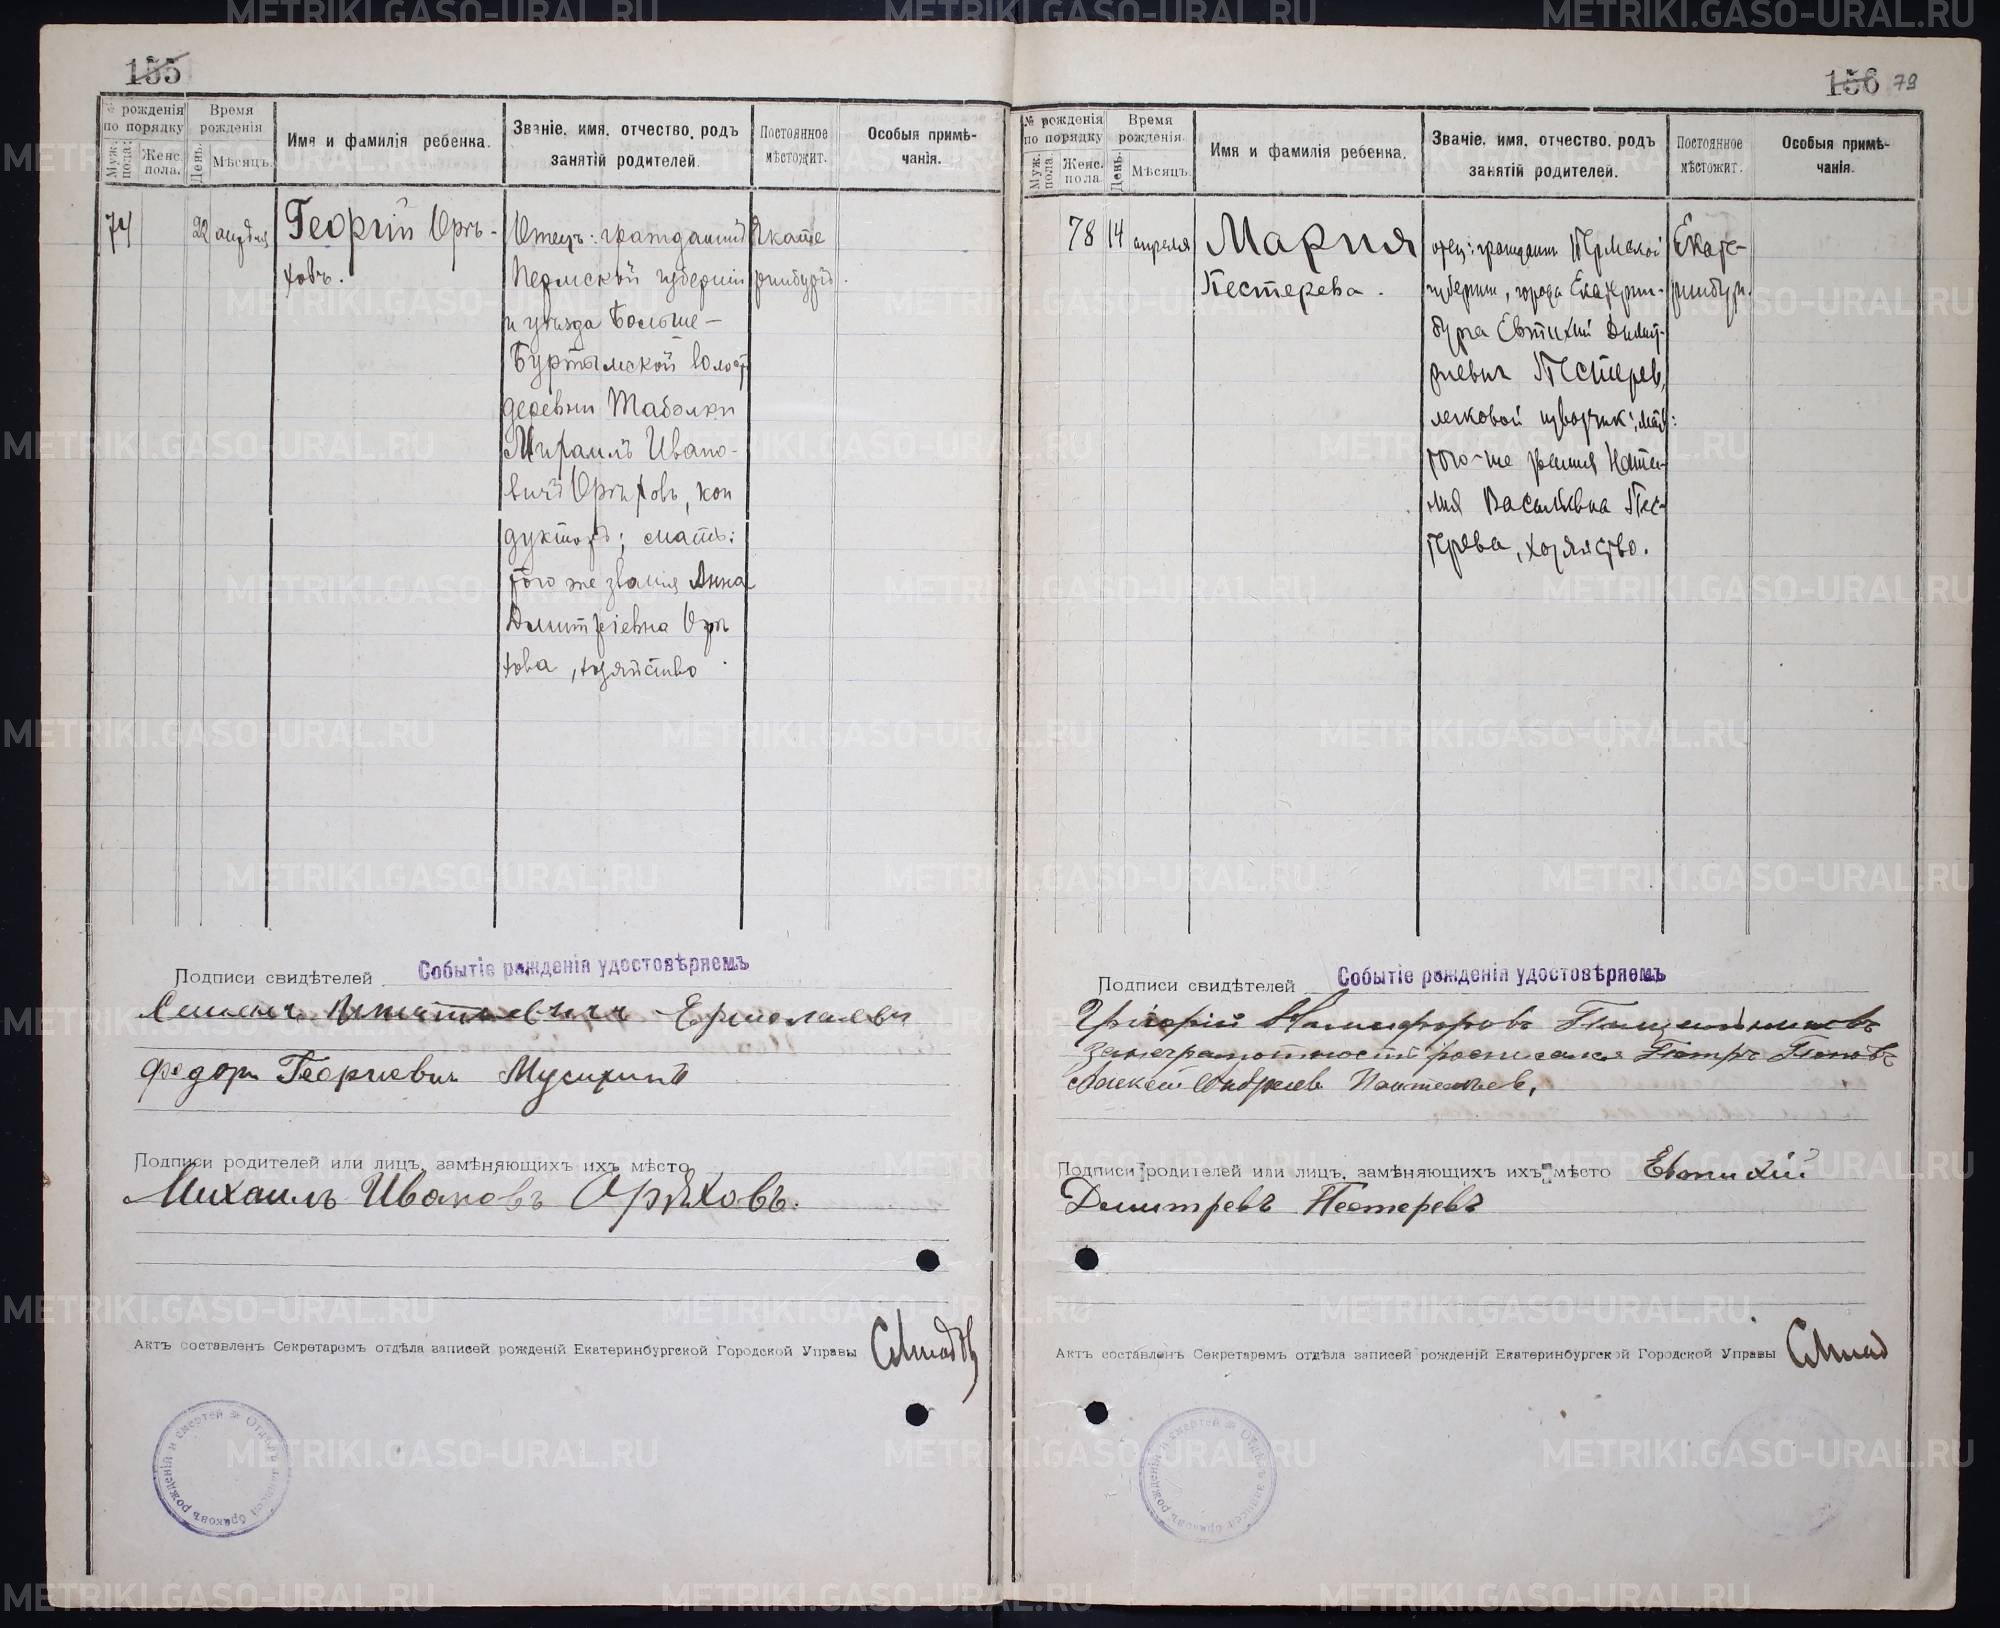 155
№ рожденія по порядку
Муж. пола.
Женс. пола.
Время рожденія
День.
Мѣсяцъ.
Имя и фамилія ребенка.
Званіе, имя, отчество, родъ занятій родителей.
Постоянное мѣстожит.
Особыя примѣчанія.
74
22
апрѣля
Георгій Орѣ-
ховъ.
Отецъ: гражданинъ
Пермской губерніи
и уѣзда Больше-
Буртымской волост
деревни Таболки
Михаилъ Ивано-
вичъ Орѣховъ, кон
дукторъ; мать:
того же званія Анна
Дмитріевна Орѣ
хова, хозяйство.
Екате
ринбургъ.
Подписи свидѣтелей
Событіе рожденія удостовѣряемъ
Семенъ Игнатьевичъ Ермолаевъ
Федоръ Георгиевичъ Мусихинъ
Подписи родителей или лицъ, замѣняющихъ ихъ мѣсто
Михаилъ Ивановъ Орѣховъ.
Актъ составленъ Секретаремъ отдѣла записей рожденій Екатеринбургской Городской Управы
156 79
№ рожденія по порядку
Муж. пола.
Женс. пола
Время рожденія.
День.
Мѣсяцъ.
Имя и фамилія ребенка.
Званіе, имя, отчество, родъ занятій родителей.
Постоянное мѣстожит.
Особыя примѣчанія.
78
14
апреля
Мария
Пестерева.
отец: гражданин Пермской
губернии, города Екатерин-
бурга Евтихий Димит-
риевич Пестерев,
легковой извозчик; мать:
того-же звания Ната-
лия Васильевна Пес-
терева, хозяйство.
Екате-
ринбург.
Подписи свидѣтелей
Событіе рожденія удостовѣряемъ
Григорій Никифоровъ
занеграмотностью росписался Петръ Поповъ
Алексей Андреев Пантелеев,
Подписи родителей или лицъ, замѣняющихъ ихъ мѣсто Евтихій
Дмитревъ Пестеревъ
Актъ составленъ Секретаремъ отдѣла записей рожденій Екатеринбургской Городской Управы
METRIKI.GASO-URAL.RU